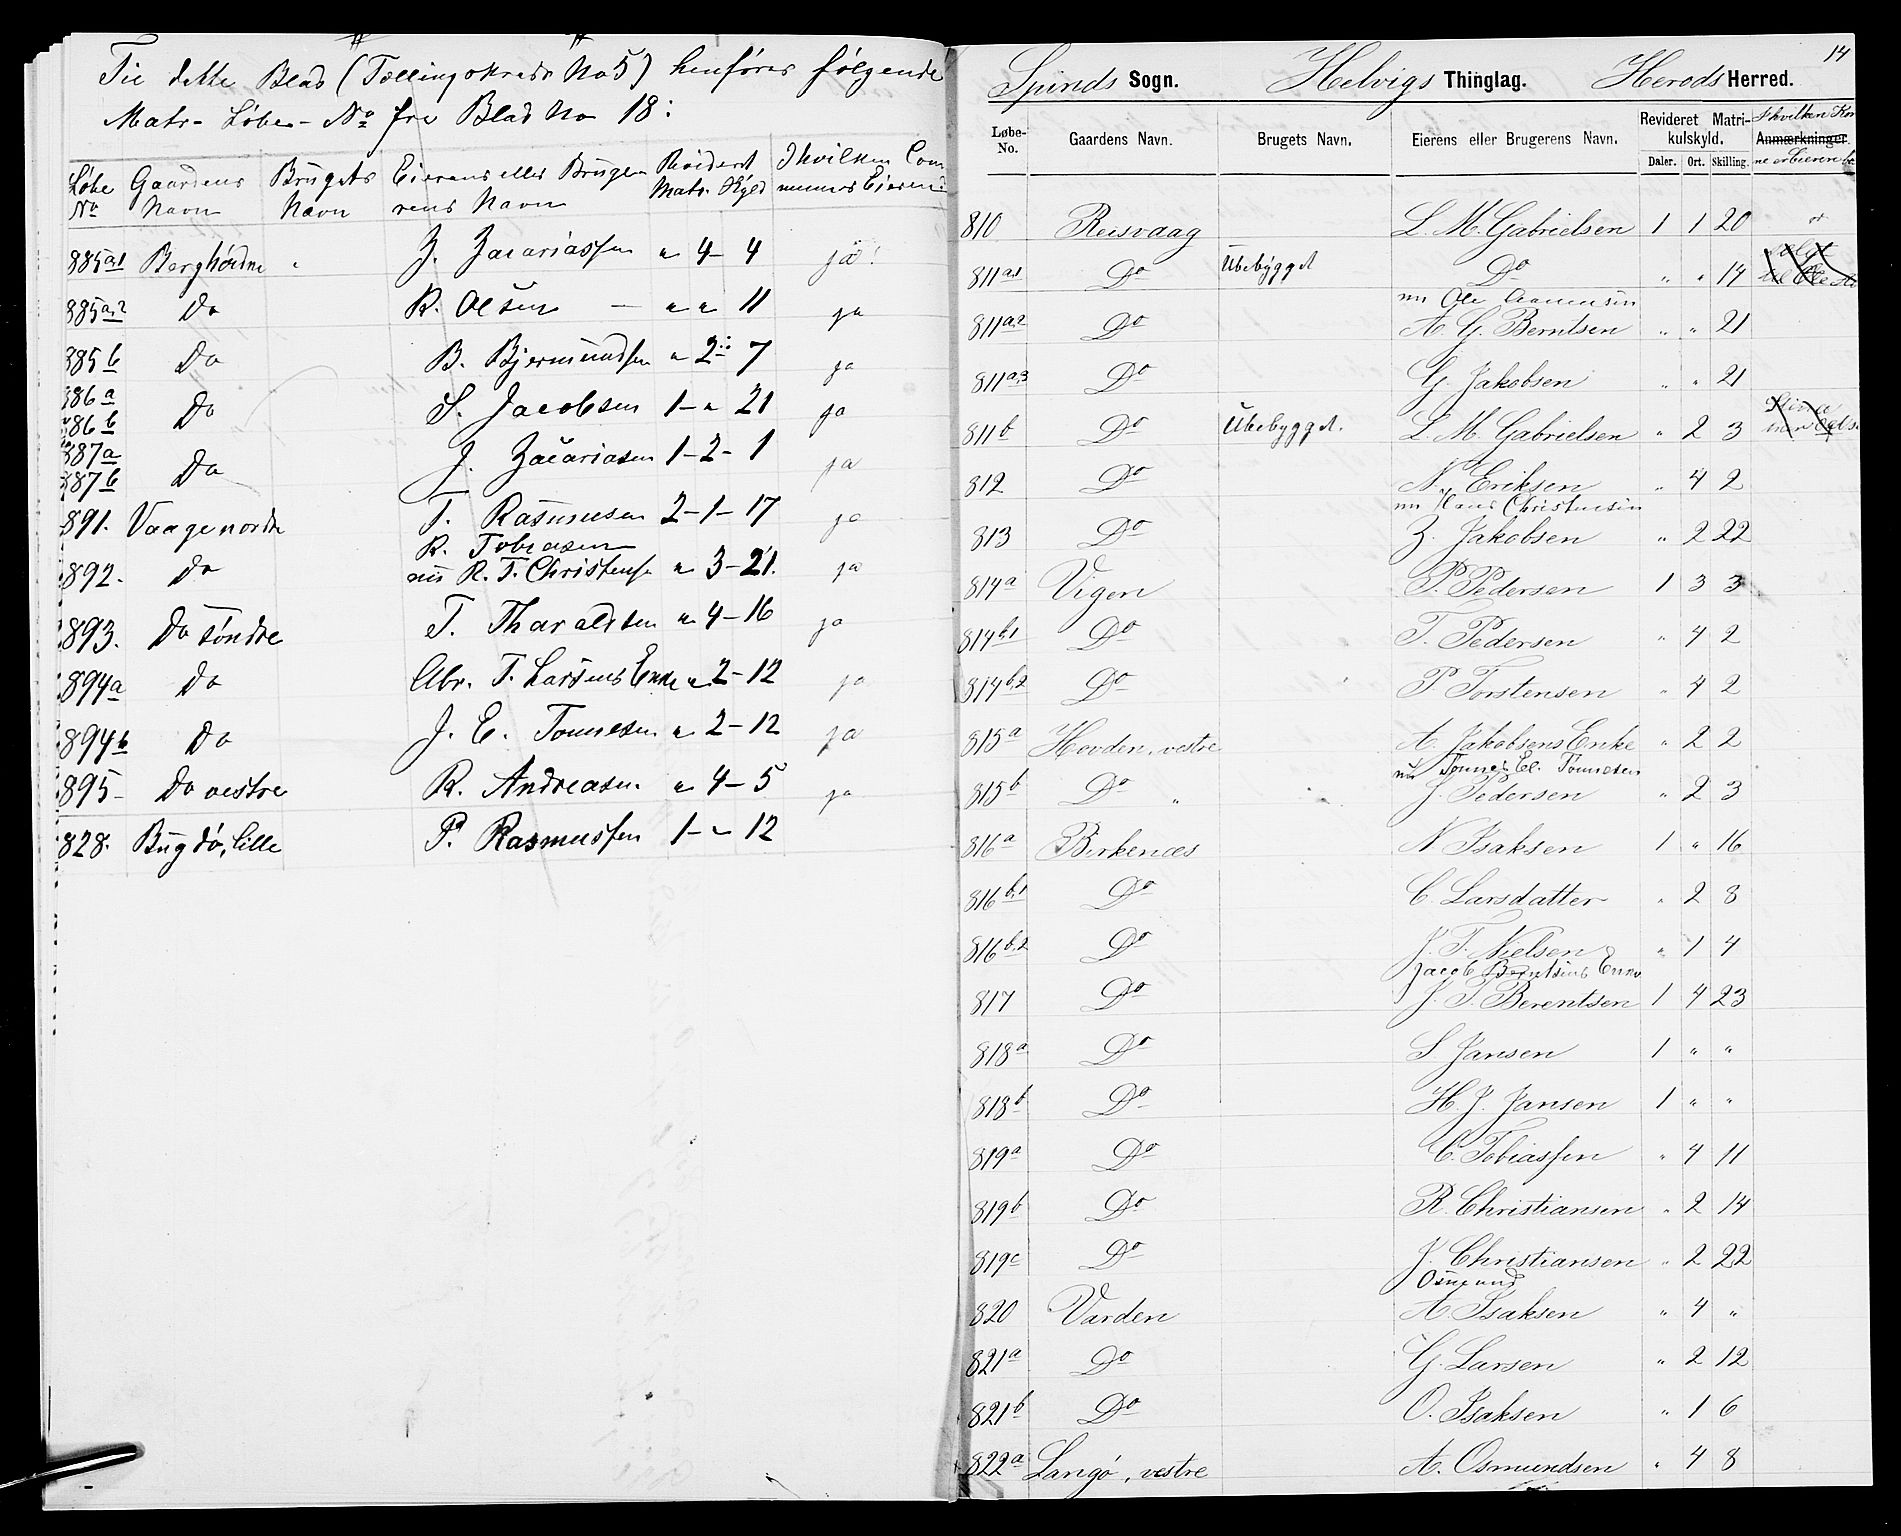 Til dette Blad (Tællingskreds No 5) henføres følgende
Matr- Løbe- No fra Blad No 18:
Løbe No Gaardens Navn Brugets Navn Eierens eller Brugerens Navn Revideret Matr. Skyld I hvilken Communes Eieren
885a1 Berghövdne " J. Zacariassen " 4 - 4 ja
885a,2 Do R. Olsen — " " 11 ja
885b Do B. Bjermundsen " 2 - 7 ja
886a
886b Do S. Jacobsen 1 - " 21 ja
887a
887b Do J. Zacariasen 1 - 2 - 1 ja
891. Vaage nordre T. Rasmusen 2 - 1 - 17 ja
R. Tobiasen
892. Do nu R. T. Christens. " 3 - 21. ja
893. Do søndre T. Tharaldsen " 4 - 16 ja
894a Do Abr. T. Larsens Enke " 2 - 12 ja
894b Do J. E. Tönnesen " 2 - 12 ja
895 - Do vestre R. Andreasen " 4 - 5 ja
828. Bugdö, lille P. Rasmussen 1 - " 12
14
Spinds Sogn. Helvigs Thinglag. Herods Herred.
Løbe-No. Gaardens Navn. Brugets Navn. Eierens eller Brugerens Navn. Revideret Matrikulskyld. Daler. Ort. Skilling. I hvilken Anmærkninger. Eieren
810 Reisvaag L. M. Gabrielsen 1 1 20
811a1 Do Ubebygget Do " " 14 Solgt til Ole
nu Ole
811a,2 Do A. G. Berntsen " " 21
811a,3 Do G. Jakobsen " " 21
811b Do Ubebygget. L. M. Gabrielsen " 2 3
812 Do N. Eriksen " 4 2
nu Hans Christensen
813 Do Z. Jakobsen " 2 22
814a Vigen P. Pedersen 1 3 3
814b,1 Do T. Pedersen " 4 2
814b,2 Do P. Torstensen " 4 2
815a Hovden, vestre A. Jakobsens Enke " 2 2
nu Tönnes El. Tönnesen
815b Do " J. Pedersen " 2 3
816a Birkenæs N. Isaksen 1 " 16
816b,1 Do C. Larsdatter " 2 8
816b,2 Do J. T. Nielsen " 1 4
Jacob Berntsens Enke
817 Do J. T. Berentsen 1 4 23
818a Do S. Jansen 1 " "
818b Do H. J. Jansen 1 " "
819a Do C. Tobiassen " 4 11
819b Do R. Christiansen " 2 14
819c Do J. Christiansen " 2 22
Osmund
820 Varden A. Isaksen " 4 "
821a Do G. Larsen " 2 12
821b Do O. Isaksen " 1 6
822a Langö, vestre A. Osmundsen " 4 8